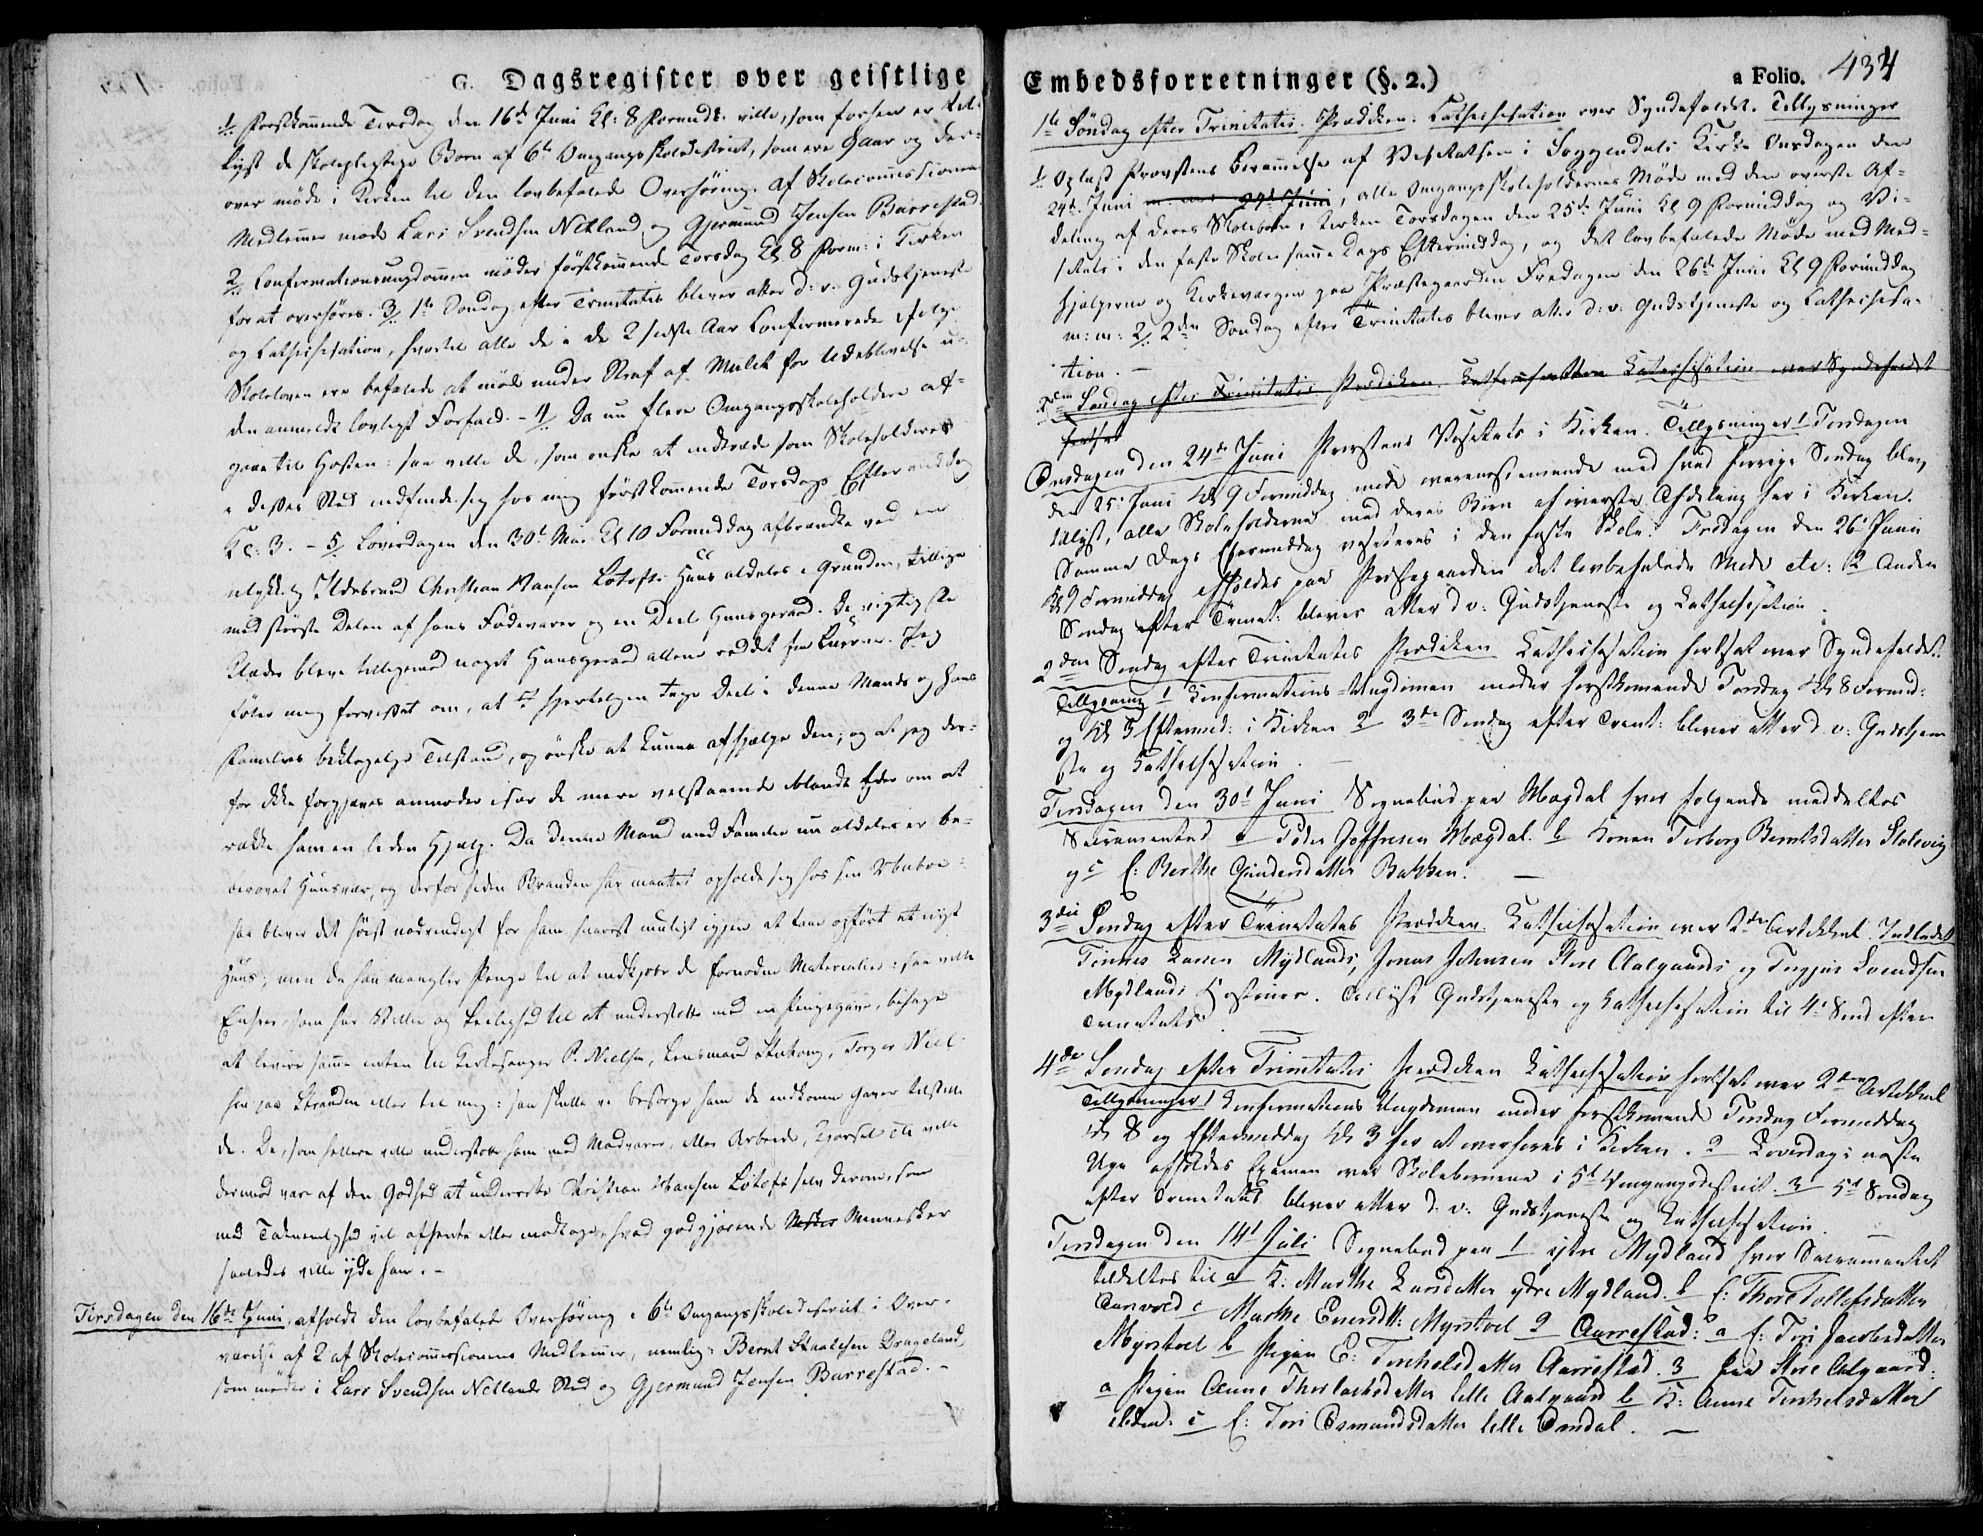 G. Dagsregister over geistlige
1/. Førstkommende Tirsdag den 16de Juni Kl: 8 Formidd: ville, som forhen er til-
lyst de skolepligtige Børn af 6te Omgangsskoledistrict, som ere 9 Aar og der-
over møde i Kirken til den lovbefalede Overhøring. Af Skolecommissionens
Medlemmer møde Lars Svendsen Netland og Gjermund Jensen Barrestad.
2/. Confirmationsungdommen møder førstkommende Torsdag Kl 8 Form: i Kirken
for at overhøres. 3/. 1te Søndag efter Trinitatis bliver atter d: v. Gudstjeneste
og Cathechisation, hvortil alle de i de 2 sidste Aar Confirmerede ifølge
Skoleloven ere befalede at møde under Straf af Mulct for Udeblivelse u-
den anmeldt lovligt Forfald. - 4/. Da nu flere Omgangsskoleholdere af-
gaae til Høsten: saa ville de, som ønske at indtræde som Skoleholdere
i disses Sted indfinde sig hos mig førstkommende Torsdags Eftermiddag
Kl: 3. - 5/. Løverdagen den 30te Mai Kl 10 Formiddag afbrændte ved en
ulykkelig Ildebrand Christian Hansen Lotofts Huus aldeles i Grunden, tillige
med største Delen af hans Fødevarer og en Deel Huusgeraad. De vigtigste
Klæder bleve tilligemed noget Huusgeraad allene reddet fra Luerne. Jeg
føler mig forvisset om, at I hjerteligen tage Deel i denne Mands og hans
Families beklagelige Tilstand, og ønske at kunne afhjælpe den; og at jeg der-
for ikke forgjæves anmoder især de mere velstaaende iblandt Eder om at
række ham en liden Hjælp. Da denne Mand med Familie nu aldeles er be-
røvet Huusvær, og derfor siden Branden har maattet opholde sig hos sin Naboe:
saa bliver det høist nødvendigt for ham snarest muligt igjen at faae opført et nyt
Huus; men da han mangler Penge til at indkjøbe de fornødne Materialier: saa ville
Enhver, som har Villie og Leilighed til at understøtte med en Pengegave, behage
at levere samme enten til Kirkesanger P. Nielsen, Lensmand Stuhaug, Torger Niel-
sen paa Stranden eller til mig: saa skulle vi besørge ham de indkomne Gaver tilstille-
de. De, som hellere ville understøtte ham med Madvarer, eller Arbeide, Kjørsel etc ville
dermed være af den Godhed at underrette Christian Hansen Lotoft selv derom, som
med Taknemlighed vil afhente eller modtage, hvad godgjørende Mennesker
saaledes ville yde ham. -
Tirsdagen den 16de Juni, afholdt den lovbefalede Overhøring i 6te Omgangsskoledistrict i Over-
værelse af 2 af Skolecommissionens Medlemmer, nemlig: Bernt Staalesen Drageland,
som møder i Lars Svendsen Netlands Sted og Gjermund Jensen Barrestad. -
Embedsforretninger (§. 2.)
a Folio. 434
1te Søndag efter Trinitatis. Prædiken. Cathechisation over Syndefaldet. Tillysninger
1/. Oplæst Provstens Berammelse af Visitatsen i Soggendals Kirke Onsdagen den
24de Juni 24de Juni, alle Omgangsskoleholdernes Møde med den øverste Af-
deling af deres Skolebørn i Kirken Torsdagen den 25de Juni Kl 9 Formiddag og Vi-
sitats i den faste Skole samme Dags Eftermiddag, og det lovbefalede Møde med Med-
hjælperne og Kirkeværgen paa Præstegaarden Fredagen den 26de Juni Kl 9 Formiddag
m: m: 2/. 2den Søndag efter Trinitatis bliver atter d: v: Gudstjeneste og Cathechisa-
tion. -
2den Søndag efter Trinitatis Prædiken. Cathechisation over Syndefaldet
fortsat
Onsdagen den 24de Juni Provstens Visitats i Kirken. Tillysninger 1 Torsdagen
den 25de Juni Kl 9 Formiddag møde overensstemmende med hvad forrige Søndag blev
tillyst, alle Skoleholderne med deres Børn af øverste Afdeling her i Kirken.
Samme Dags Eftermiddag visiteres i den faste Skole. Fredagen den 26de Juni
Kl 9 Formiddag afholdes paa Præstegaarden det lovbefalede Møde etc: 2 Anden
Søndag efter Trinit: bliver atter d v: Gudstjeneste og Cathechisation.
2den Søndag efter Trinitatis Prædiken Cathechisation fortsat over Syndefaldet.
Tillysning 1 Confirmations-Ungdommen møder førstkommende Torsdag Kl 8 Formid:
og Kl 3 Eftermid: i Kirken 2 3die Søndag efter Trinit: bliver atter d. v: Gudstjene-
ste og Cathechisation. -
Tirsdagen den 30te Juni Sognebud paa Mægdal hvor følgende meddeltes
Sacramentet a Peder Joffresen Mægdal. b Konen Torborg Berntsdatter Stolsvig
og c E: Berthe Gundersdatter Bakken. -
3die Søndag efter Trinitatis Prædiken. Cathechisation over 2den Artikkel. Indledet
Tønnes Larsen Mydlands, Jonas Johnsen Store Aalgaards og Torgjus Svendsen
Mydlands Hostruer. Tillyst Gudstjeneste og Cathechisation til 4de Sønd efter
Trinitatis. -
4de Søndag efter Trinitatis Prædiken Cathechisation fortsat over 2den Artikkel
Tillysninger 1 Confirmations Ungdommen møder førstkommende Tirsdag Formiddag
Kl 8 og Eftermiddag Kl 3 for at overhøres i Kirken. 2 Løverdag i næste
Uge afholdes Examen over Skolebørnene i 5te Omgangsdistrict. 3 5te Søndag
efter Trinitatis bliver atter d. v. Gudstjeneste og Cathechisation. -
Tirsdagen den 14de Juli Sognebud paa 1 ytre Mydland hvor Sacramentet
tildeltes til a K: Marthe Larsdatter ydre Mydland. b E: Thore Tollefsdatter
c Marthe Enersdtt: Myrstod 2 Aarrestad: a E: Tori Jacobsdatter
Myrstod b Pigen E: Torkelsdatter Aarrestad. 3 paa Store Aalgaard:
a Pigen Anne Thorlachsdatter lille Aalgaard b K: Anne Torkelsdatter
ibidem: c E: Tori Osmundsdatter lille Omdal. -